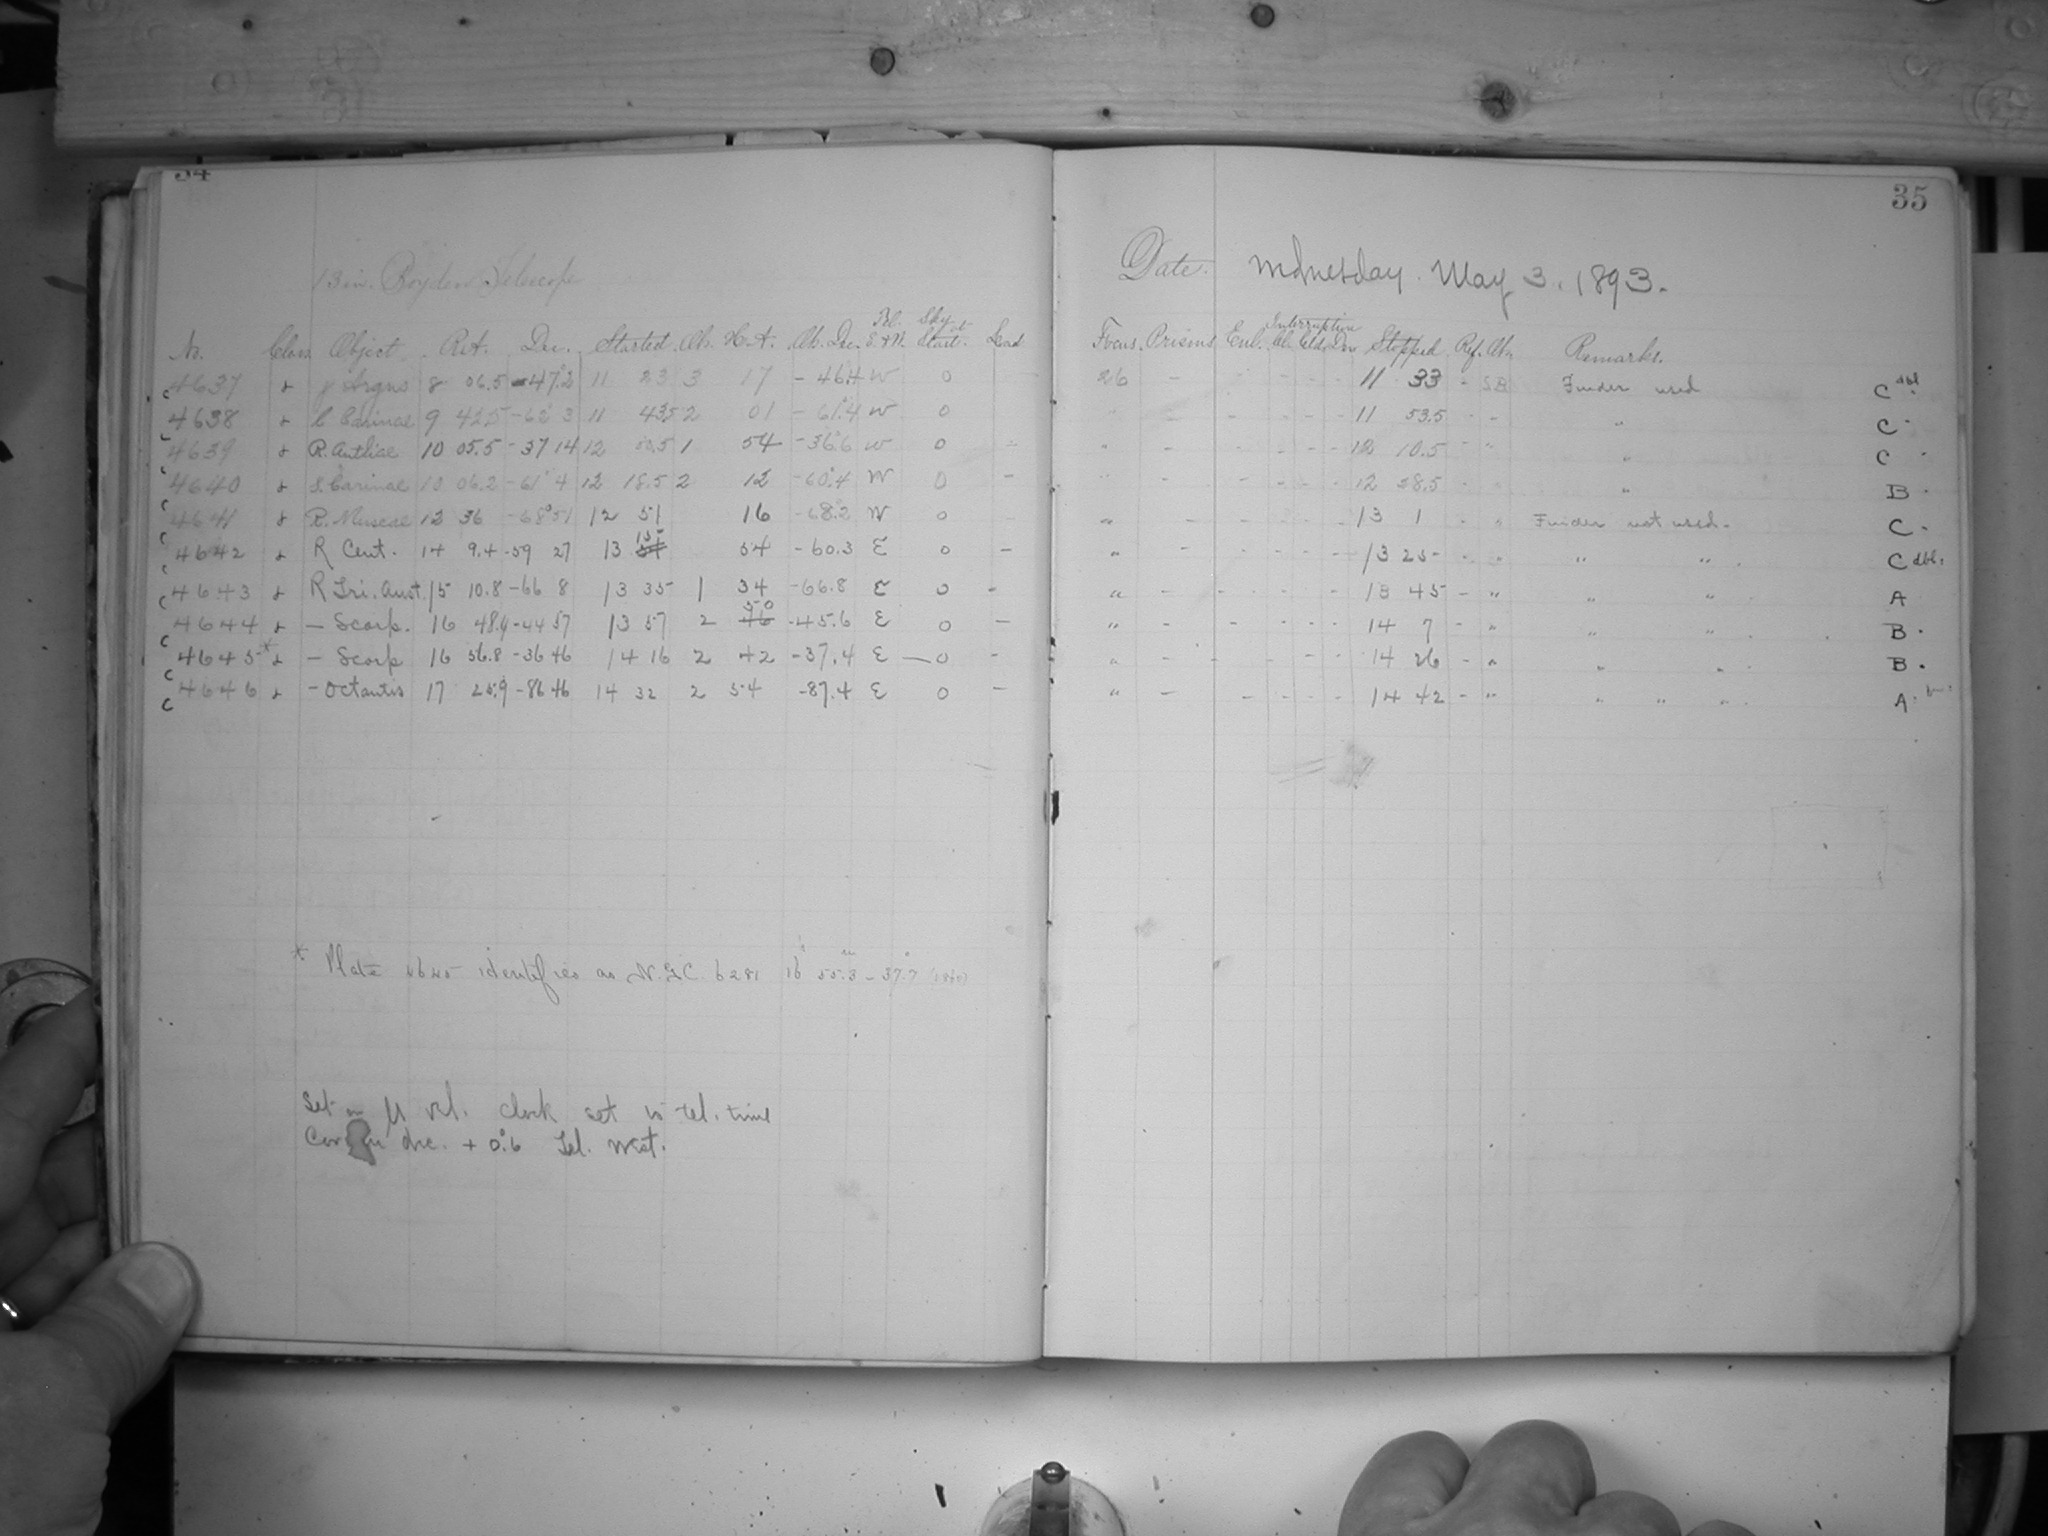 34
13 in. Boyden Telescope
No. Class Object R.A. Dec. Started Ob. H.A. Ob. Dec. Tel. E. or W. Sky at Start. Lead
4637 γ Argus 8 06.5 -47°.2 11 23 3 17 -46.4 W 0
4638 l Carinae 9 42.5 -62 3 11 43.5 2 01 -61°.4 W 0
4639 R. Antliae 10 05.5 -37 14 12 00.5 1 54 -36°.6 W 0 -
4640 S. Carinae 10 06.2 -61 4 12 18.5 2 12 -60°.4 W 0 -
4641 R. Muscae 12 36 -68° 51 12 51 16 -68°.2 W 0
4642 R Cent. 14 9.4 -59 27 13 15 54 -60.3 E 0 -
4643 R Tri. Aust. 15 10.8 -66 8 13 35 1 34 -66.8 E 0 -
4644 - Scorp. 16 48.4 -44 57 13 57 2 50 -45.6 E 0 -
4645* - Scorp 16 56.8 -36 46 14 16 2 42 -37.4 E -0 -
4646 - Octantis 17 25.9 -86 46 14 32 2 54 -87.4 E 0 -
* Plate 4645 identifies as N.G.C. 6281 16h 55m.3 - 37°.7 (1860)
Set on μ Vel. clock set to tel. time
Cor in dec. + 0°.6 Tel. West.
35
Date. Wednesday. May 3, 1893.
Focus. Prisms Encl. Interruption Cl. Cld. Dw Stopped Ref. Obs. Remarks.
26 - - - - - 11 33 - SB Finder used C dbl.
- - - - 11 53.5 - " " C
" - - - - - 12 10.5 - " " C
- - - - - 12 28.5 - " " B
" - - - - - 13 1 - " Finder not used. C
" - - - - - 13 25 - " " " C dbl.
" - - - - - 13 45 - " " " A
" - - - - - 14 7 - " " " B.
" - - - - - 14 26 - " " " B.
" - - - - - 14 42 - " " " " A.